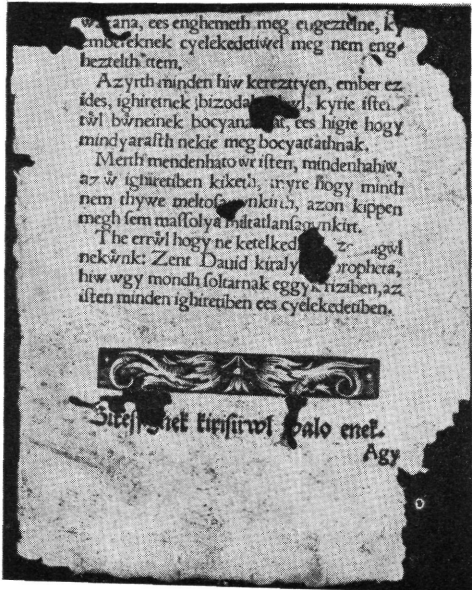 ees enghemeth meg eugeztelne, ky
embereknek cyelekedetiwel meg nem eng
heztelth
Azyrth minden hiw kerezttyen, ember ez
ides, ighiretnek kyrie iſten
bẃneinek ees higie hogy
mindyaraſth nekie meg bocyattathnak.
Merth mendenhato wr iſten, mindenhahiw,
az ẃ ighiretiben kiketh, myre hogy minth
nem thywe azon kippen
megh sem maſſolya
The errẃl hogy ne
nekẃnk: Zent Dauid kiraly propheta,
hiw wgy mondh ſoltarnak eggyk riziben, az
iſten minden ighiretiben ees cyelekedetiben.
kiriſirwl walo enek.
Agy